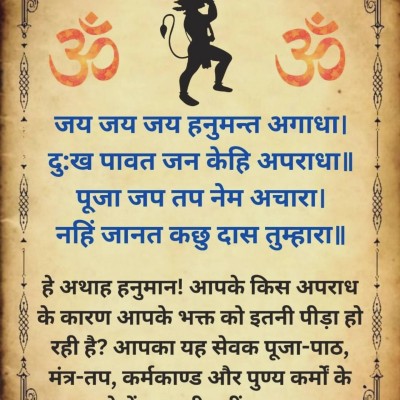 ॐ ॐ
जय जय जय हनुमन्त अगाधा।
दुःख पावत जन केहि अपराधा॥
पूजा जप तप नेम अचारा।
नहिं जानत कछु दास तुम्हारा॥
हे अथाह हनुमान! आपके किस अपराध
के कारण आपके भक्त को इतनी पीड़ा हो
रही है? आपका यह सेवक पूजा-पाठ,
मंत्र-तप, कर्मकाण्ड और पुण्य कर्मों के